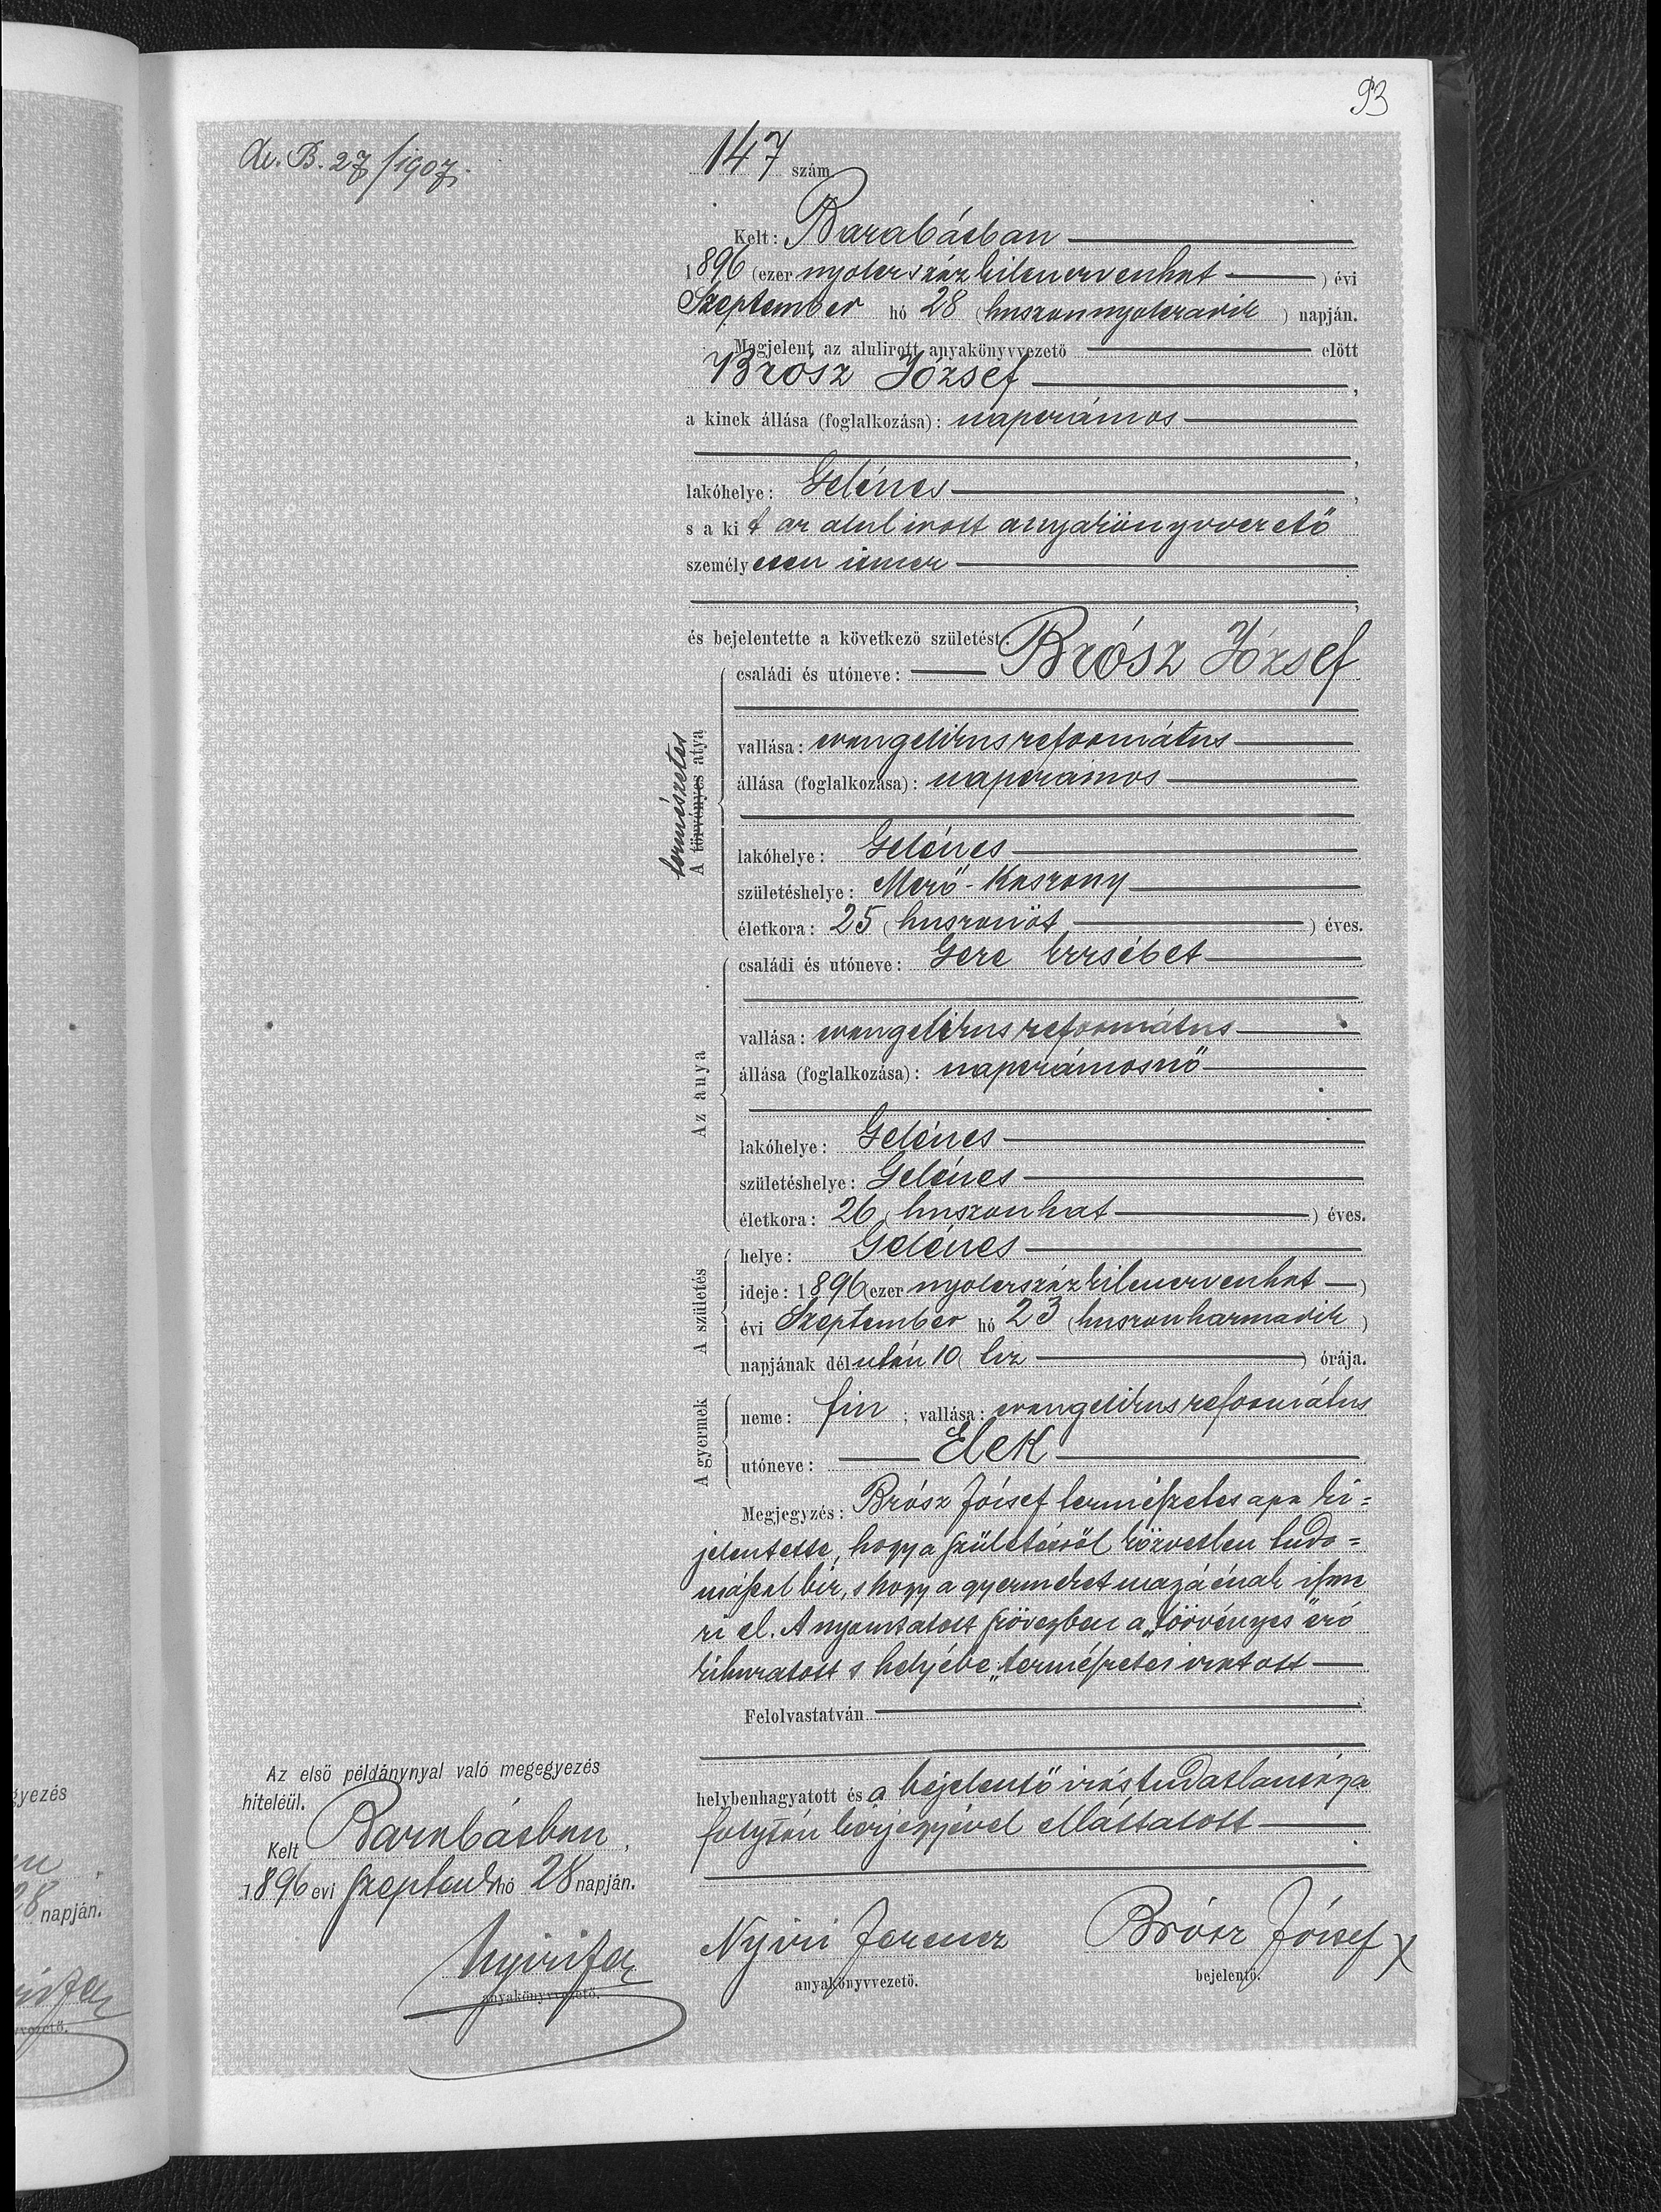 93
B. 27/1907.
147 szám
Kelt: Barabásban
1896 (ezer nyolczszázkilenczvenhat) évi
Szeptember hó 28 (huszonnyolczadik) napján.
Megjelent az alulirott anyakönyvvezető előtt
Brósz József,
a kinek állása (foglalkozása): napszámos
,
lakóhelye: Gelénes,
s a kit az alulirott anyakönyvvezető
személyesen ismer
,
és bejelentette a következő születést:
A törvényes atya
természetes
családi és utóneve: Brósz József
vallása: evangelikus református
állása (foglalkozása): napszámos
lakóhelye: Gelénes
születéshelye: Mező-Kaszony
életkora: 25 (huszonöt) éves.
Az anya
családi és utóneve: Gere Erzsébet
vallása: evangelikus református
állása (foglalkozása): napszámosnő
lakóhelye: Gelénes
születéshelye: Gelénes
életkora: 26 (huszonhat) éves.
A születés
helye: Gelénes
ideje: 1896 (ezer nyolczszázkilenczvenhat)
évi Szeptember hó 23 (huszonharmadik)
napjának délután 10 (tiz) órája.
A gyermek
neme: fiu; vallása: evangelikus református
utóneve: Elek
Megjegyzés: Brósz József természetes apa ki=
jelentette, hogy a születésről közvetlen tudo=
mással bir, s hogy a gyermeket magáénak isme
ri el. A nyomtatott szövegben a „törvényes" szó
kihuzatott s helyébe „természetes iratott
Felolvastatván
helybenhagyatott és a bejelentő irástudatlansága
folytán kézjegyével elláttatott
Nyiri Ferencz
anyakönyvvezető.
Brósz József x
bejelentő.
Az első példánynyal való megegyezés
hiteléül.
Kelt Barabásban,
1896 évi Szeptemb hó 28 napján.
Nyiri Fer
anyakönyvvezető.
gyezés
28 napján.